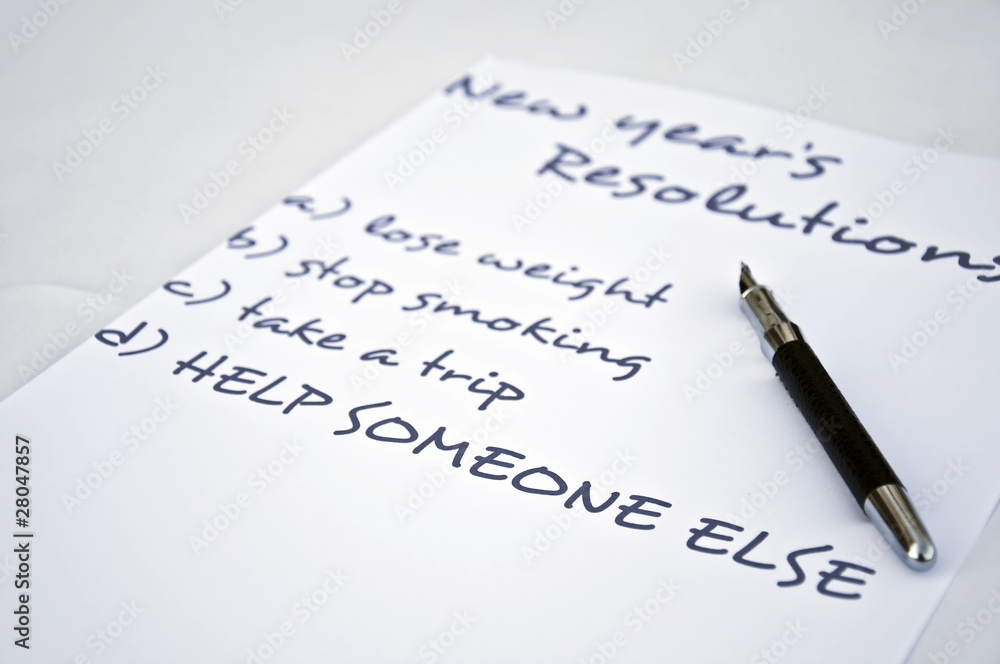 New year's
Resolutions
a) lose weight
b) stop smoking
c) take a trip
d) HELP SOMEONE ELSE
Adobe Stock | #28047857